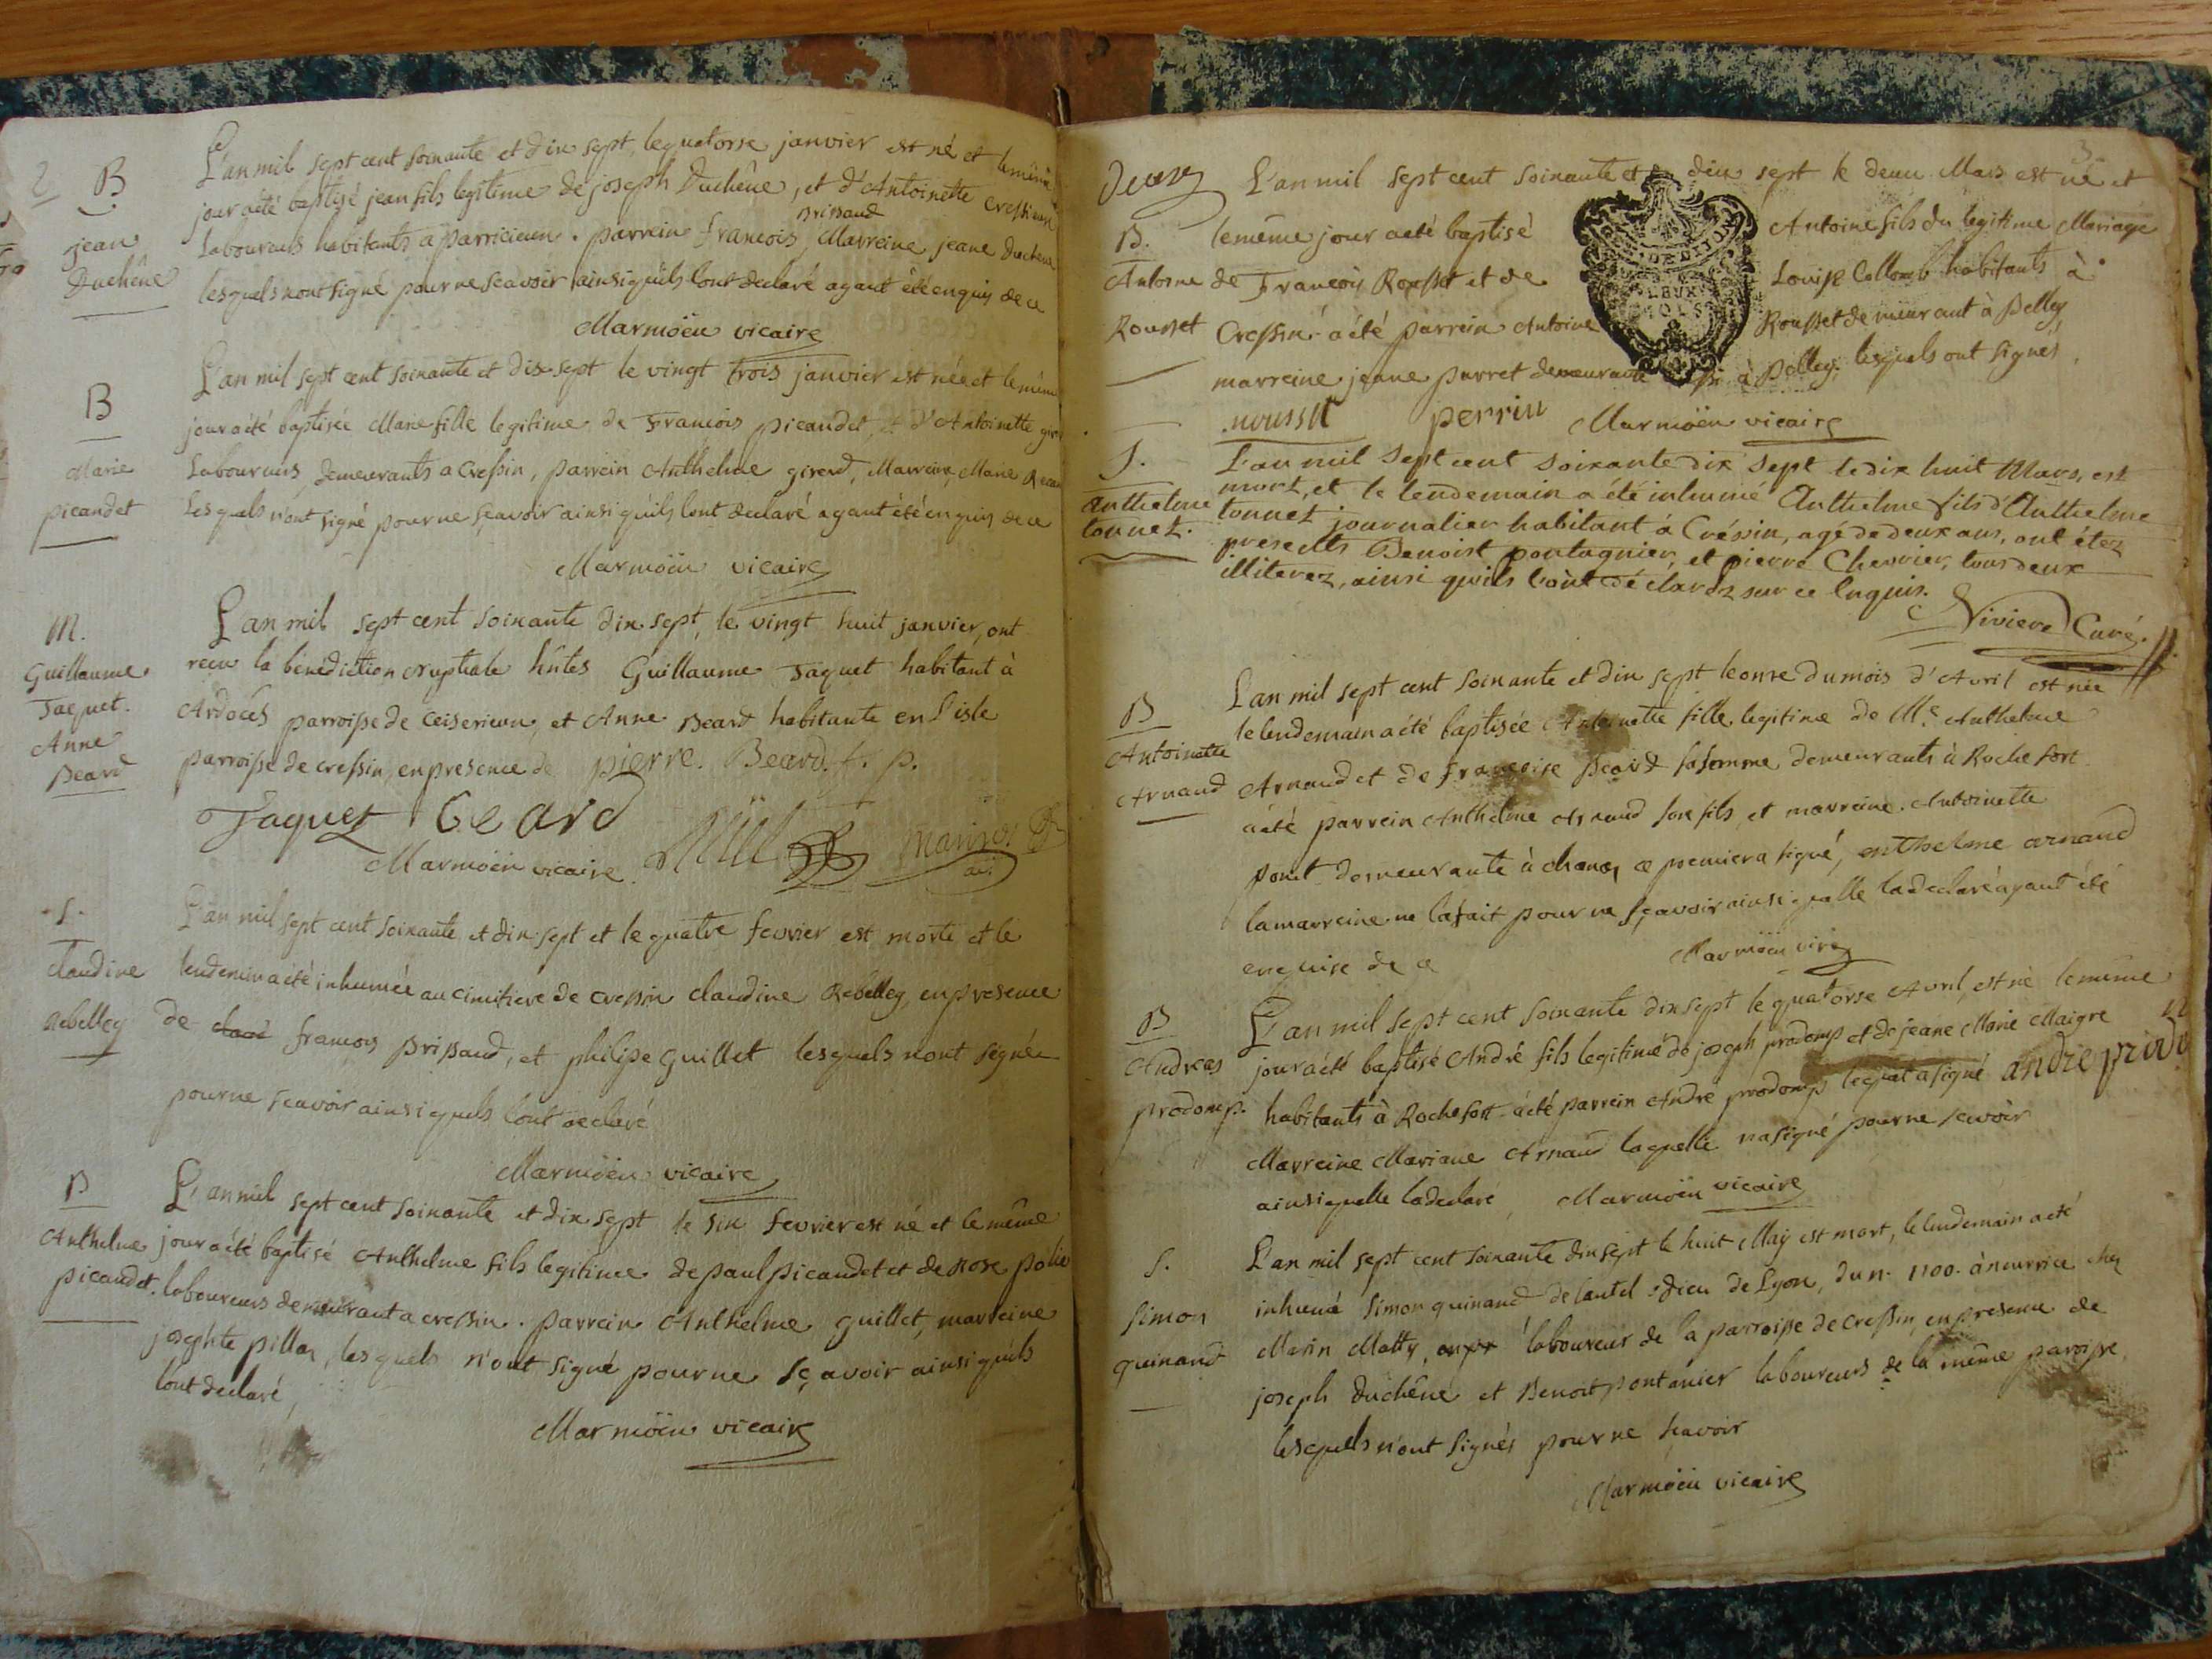 2
B
jean
Duchêne
L'an mil sept cent soixante et dix sept, le quatorse janvier est né et le même
jour a été baptisé jean fils legitime de joseph Duchêne, et d'Antoinette
Brissaud
Laboureurs habitants a parricieu. parrein francois, Marreine jeane Duchene
lesquels n'ont signé pour ne scavoir ainsi qu'ils l'ont declaré ayant été enquis de ce
Marmöen vicaire
B
Marie
picandet
L'an mil sept cent soixante et dix sept le vingt trois janvier est née et le même
jour a été baptisée Marie fille legitime de Francois picandet, et d'Antoinette
Laboureurs, demeurants a Cressin, parrein Anthelme girerd, Marreine Marie
Lesquels n'ont signé pour ne sçavoir ainsi qu'ils l'ont declaré ayant été enquis de ce
Marmöen vicaire
M.
Guillaume
Jaquet.
Anne
Beard
L'an mil sept cent soixante dix sept, le vingt huit janvier, ont
recu la bénédiction nuptiale hñtes Guillaume Jaquet habitant à
Ardoces parroisse de Ceiserieu, et Anne Beard habitante en l'isle
parroisse de cressin, en presence de pierre. Beard. f. p.
Jaquet Beard
Marmöen vicaire.
S.
Claudine
Rebelley
L'an mil sept cent soixante et dix sept et le quatre fevrier est morte et le
lendemin a été inhumée au cimitiere de cressin claudine Rebelley, en presence
de francois Brissaud, et philipe Guillet lesquels n'ont signée
pour ne scavoir ainsi quels l'ont declaré
Marmöen vicaire
B
Anthelme
picandet.
L'an mil sept cent soixante et dix sept le six fevrier est né et le même
jour a été baptisé Anthelme fils legitime de paul picandet et de Rose
laboureurs demeurant a cressin. parrein Anthelme guillet, marreine
josephte pillar, lesquels n'ont signé pour ne sçavoir ainsi qu'ils
l'ont declaré,
Marmöen vicaire
Deux
B.
Antoine
Rousset
L'an mil sept cent soixante et dix sept le deux Mars est né et
le même jour a été baptisé Antoine fils du legitime Mariage
de Francois Rousset et de Louise Collomb habitants à
Cressin a été parrein Antoine Rousset demeurant à Belley
marreine jeane purret demeurante à Belley, lesquels ont signés,
roussit perrin Marmöen vicaire
S.
anthelme
tonnet.
L'an mil sept cent soixante dix sept le dix huit Mars, est
mort, et le lendemain a été inhumé Anthelme fils d'Anthelme
tonnet journalier habitant à Créssin, agé de deux ans, ont étez
présents Benoist pontagnier, et pierre Chevrier, tous deux
illiterez, ainsi qu'ils l'ont déclarez sur ce Enquis.
Viviers Curé.
B
Antoinette
Arnaud
L'an mil sept cent soixante et dix sept le onse du mois d'Avril est née
le lendemain a été baptisée Antoinette fille legitime de Me. Anthelme
Arnaud et de francoise Beard sa femme demeurants à Rochefort
a été parrein Anthelme Arnaud son fils, et marreine Antoinette
pont demeurante à chanas ce premier a signé, enthelme arnaud
la marreine ne la fait pour ne sçavoir ainsi qu'elle la declaré ayant été
enquise de ce Marmöen vire
B
Andreas
prodomp.
L'an mil sept cent soixante dix sept le quatorse Avril, est né le même
jour a été baptisé André fils legitime de joseph prodomp et de jeane Marie Maigre
habitants à Rochefort a été parrein André prodomp lequel a signé andre prodo
Marreine Mariane Arnaud laquelle na signé pour ne scavoir
ainsi quelle la declaré, Marmöen vicaire
S.
Simon
quinand
L'an mil sept cent soixante dix sept le huit May est mort, le lendemain a été
inhumé Simon quinand de lautel-dieu de Lyon, du n. 1100. à nourrice chez
Marin Matty, laboureur de la parroisse de cressin, en presence de
joseph Duchêne et Benoit pontanier laboureurs de la même paroisse,
lesquels n'ont signés pour ne sçavoir
Marmöen vicaire